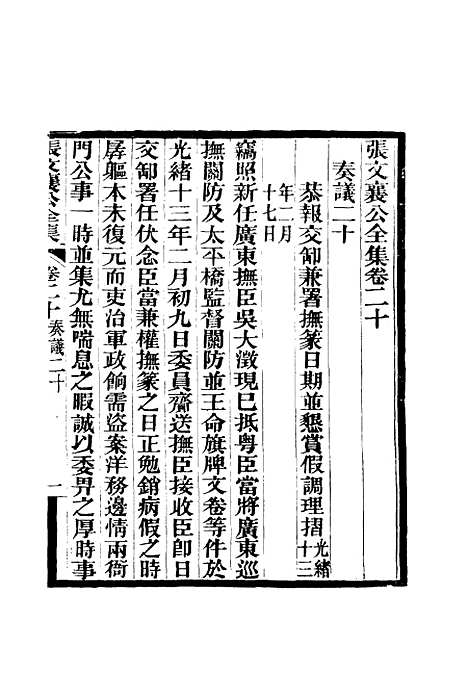 張文襄公全集卷二十
奏議二十
恭報交卸兼署撫篆日期並懇賞假調理摺光緒十三
年二月
十七日
竊照新任廣東撫臣吳大澂現已抵粤臣當將廣東巡
撫關防及太平橋監督關防並王命旗牌文卷等件於
光緒十三年二月初九日委員齎送撫臣接收臣卽日
交卸署任伏念臣當兼權撫篆之日正勉銷病假之時
孱軀本未復元而吏治軍政餉需盜案洋務邊情兩衙
門公事一時並集尤無喘息之暇誠以委畀之厚時事
張文襄公全集 卷二十 奏議二十 一